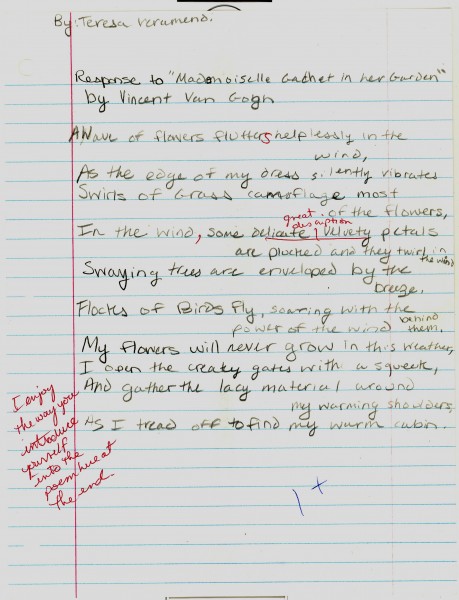 By: Teresa Veramend.
Response to "Madomoiselle Gachet in her Garden"
by Vincent Van Gogh
A Wave of flowers flutters helplessly in the
wind,
As the edge of my dress silently vibrates
Swirls of Grass camoflage most
of the flowers,
great
discription
In the wind, some delicate, velvety petals
are plucked and they twirl in
the wind
Swaying trees are enveloped by the
breeze.
Flocks of Birds fly, soaring with the
power of the wind behind
them.
My flowers will never grow in this weather,
I open the creaky gates with a squeek,
And gather the lacy material around
my warming shoulders,
As I tread off to find my warm cabin.
I enjoy
the way you
introduce
yourself
into the
poem here at
the end.
1+